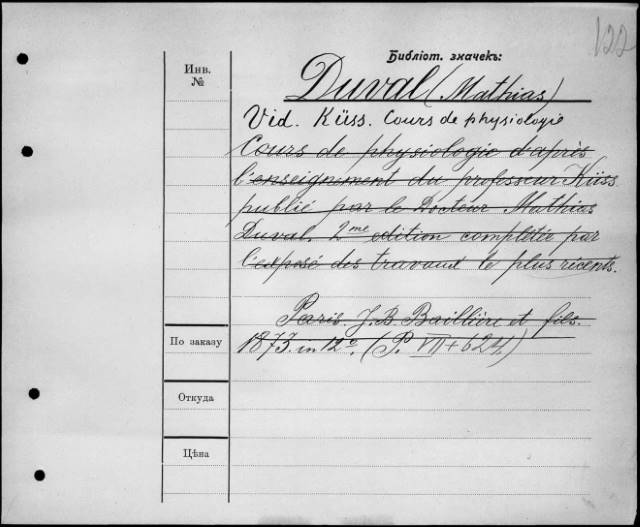 122
Библіот. значекъ:
Инв. №
Duval (Mathias)
Vid. Küss. Cours de physiologie
Cours de physiologie d'après
l'enseignment du professeur Küss
publié par le Docteur Mathias
Duval. 2me edition complétée par
l'exposé des travaux le plus récents.
Paris. J. B. Baillière et fils.
По заказу
1873. in 12º. (P. VII+624)
Откуда
Цѣна